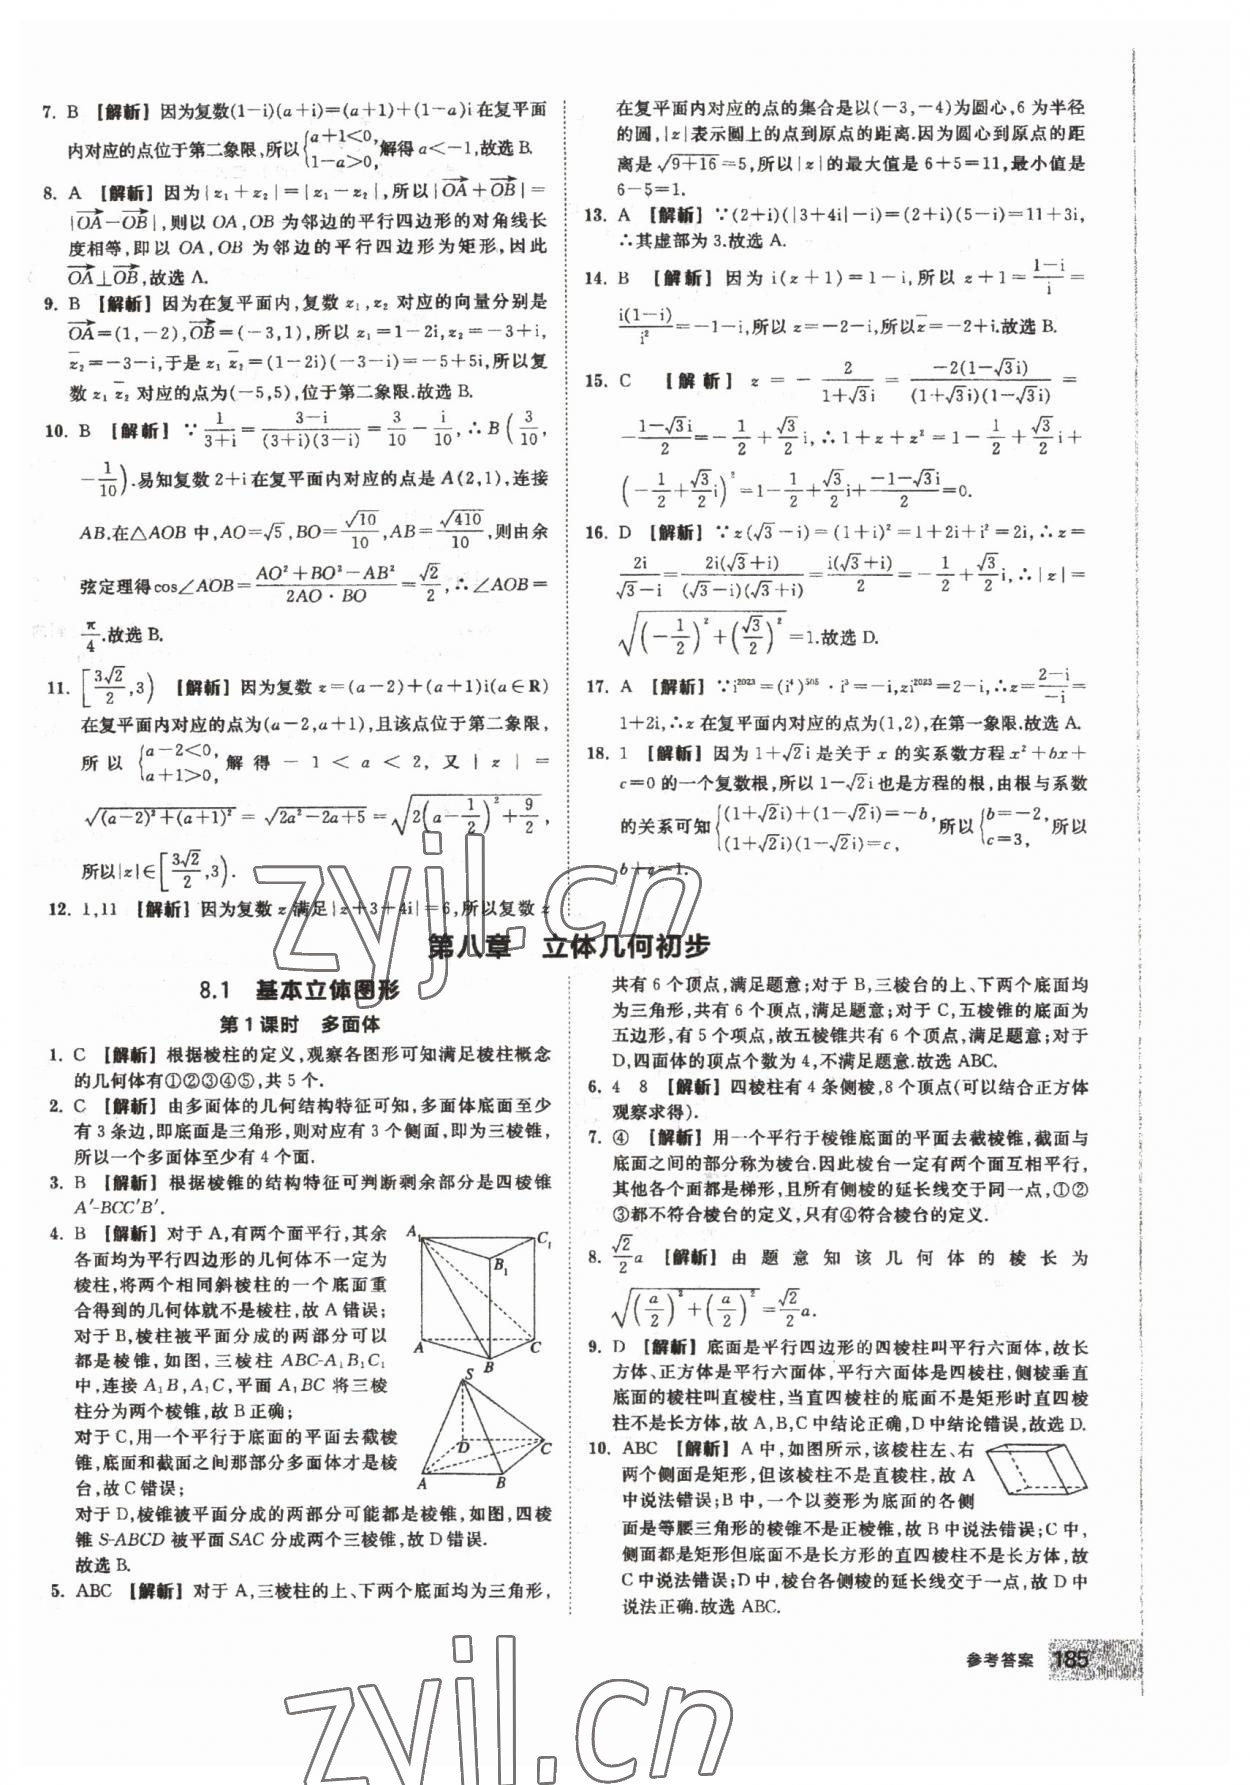 7. B 【解析】因为复数(1-i)(a+i)=(a+1)+(1-a)i在复平面
内对应的点位于第二象限,所以{a+1<0, 1-a>0,解得a<-1,故选B.
8. A 【解析】因为|z₁+z₂|=|z₁-z₂|,所以|OA→+OB→|=
|OA→-OB→|,则以OA,OB为邻边的平行四边形的对角线长
度相等,即以OA,OB为邻边的平行四边形为矩形,因此
OA→⊥OB→,故选A.
9. B 【解析】因为在复平面内,复数z₁,z₂对应的向量分别是
OA→=(1,-2),OB→=(-3,1),所以z₁=1-2i,z₂=-3+i,
z̄₂=-3-i,于是z₁z̄₂=(1-2i)(-3-i)=-5+5i,所以复
数z₁z̄₂对应的点为(-5,5),位于第二象限.故选B.
10. B 【解析】∵1/(3+i)=(3-i)/((3+i)(3-i))=3/10-i/10,∴B(3/10,
-1/10).易知复数2+i在复平面内对应的点是A(2,1),连接
AB.在△AOB中,AO=√5,BO=√10/10,AB=√410/10,则由余
弦定理得cos∠AOB=(AO²+BO²-AB²)/(2AO·BO)=√2/2,∴∠AOB=
π/4.故选B.
11. [3√2/2,3) 【解析】因为复数z=(a-2)+(a+1)i(a∈R)
在复平面内对应的点为(a-2,a+1),且该点位于第二象限,
所以{a-2<0, a+1>0,解得-1<a<2,又|z|=
√((a-2)²+(a+1)²)=√(2a²-2a+5)=√(2(a-1/2)²+9/2),
所以|z|∈[3√2/2,3).
12. 1,11 【解析】因为复数z满足|z+3+4i|=6,所以复数z
在复平面内对应的点的集合是以(-3,-4)为圆心,6为半径
的圆,|z|表示圆上的点到原点的距离.因为圆心到原点的距
离是√(9+16)=5,所以|z|的最大值是6+5=11,最小值是
6-5=1.
13. A 【解析】∵(2+i)(|3+4i|-i)=(2+i)(5-i)=11+3i,
∴其虚部为3.故选A.
14. B 【解析】因为i(z+1)=1-i,所以z+1=(1-i)/i=
i(1-i)/i²=-1-i,所以z=-2-i,所以z̄=-2+i.故选B.
15. C 【解析】z=-2/(1+√3i)=-2(1-√3i)/((1+√3i)(1-√3i))=
-(1-√3i)/2=-1/2+√3/2i,∴1+z+z²=1-1/2+√3/2i+
(-1/2+√3/2i)²=1-1/2+√3/2i+(-1-√3i)/2=0.
16. D 【解析】∵z(√3-i)=(1+i)²=1+2i+i²=2i,∴z=
2i/(√3-i)=2i(√3+i)/((√3-i)(√3+i))=i(√3+i)/2=-1/2+√3/2i,∴|z|=
√((-1/2)²+(√3/2)²)=1.故选D.
17. A 【解析】∵i²⁰²³=(i⁴)⁵⁰⁵·i³=-i,zi²⁰²³=2-i,∴z=(2-i)/(-i)=
1+2i,∴z在复平面内对应的点为(1,2),在第一象限.故选A.
18. 1 【解析】因为1+√2i是关于x的实系数方程x²+bx+
c=0的一个复数根,所以1-√2i也是方程的根,由根与系数
的关系可知{(1+√2i)+(1-√2i)=-b, (1+√2i)(1-√2i)=c,所以{b=-2, c=3,所以
b+c=1.
第八章 立体几何初步
8.1 基本立体图形
第1课时 多面体
1. C 【解析】根据棱柱的定义,观察各图形可知满足棱柱概念
的几何体有①②③④⑤,共5个.
2. C 【解析】由多面体的几何结构特征可知,多面体底面至少
有3条边,即底面是三角形,则对应有3个侧面,即为三棱锥,
所以一个多面体至少有4个面.
3. B 【解析】根据棱锥的结构特征可判断剩余部分是四棱锥
A′-BCC′B′.
4. B 【解析】对于A,有两个面平行,其余
各面均为平行四边形的几何体不一定为
棱柱,将两个相同斜棱柱的一个底面重
合得到的几何体就不是棱柱,故A错误;
对于B,棱柱被平面分成的两部分可以
都是棱锥,如图,三棱柱ABC-A₁B₁C₁
中,连接A₁B,A₁C,平面A₁BC将三棱
柱分为两个棱锥,故B正确;
对于C,用一个平行于底面的平面去截棱
锥,底面和截面之间那部分多面体才是棱
台,故C错误;
对于D,棱锥被平面分成的两部分可能都是棱锥,如图,四棱
锥S-ABCD被平面SAC分成两个三棱锥,故D错误.
故选B.
A₁
C₁
B₁
A
C
B
S
D
C
A
B
5. ABC 【解析】对于A,三棱柱的上、下两个底面均为三角形,
共有6个顶点,满足题意;对于B,三棱台的上、下两个底面均
为三角形,共有6个顶点,满足题意;对于C,五棱锥的底面为
五边形,有5个项点,故五棱锥共有6个顶点,满足题意;对于
D,四面体的顶点个数为4,不满足题意.故选ABC.
6. 4 8 【解析】四棱柱有4条侧棱,8个顶点(可以结合正方体
观察求得).
7. ④ 【解析】用一个平行于棱锥底面的平面去截棱锥,截面与
底面之间的部分称为棱台.因此棱台一定有两个面互相平行,
其他各个面都是梯形,且所有侧棱的延长线交于同一点,①②
③都不符合棱台的定义,只有④符合棱台的定义.
8. √2/2a 【解析】由题意知该几何体的棱长为
√((a/2)²+(a/2)²)=√2/2a.
9. D 【解析】底面是平行四边形的四棱柱叫平行六面体,故长
方体、正方体是平行六面体,平行六面体是四棱柱,侧棱垂直
底面的棱柱叫直棱柱,当直四棱柱的底面不是矩形时直四棱
柱不是长方体,故A,B,C中结论正确,D中结论错误,故选D.
10. ABC 【解析】A中,如图所示,该棱柱左、右
两个侧面是矩形,但该棱柱不是直棱柱,故A
中说法错误;B中,一个以菱形为底面的各侧
面是等腰三角形的棱锥不是正棱锥,故B中说法错误;C中,
侧面都是矩形但底面不是长方形的直四棱柱不是长方体,故
C中说法错误;D中,棱台各侧棱的延长线交于一点,故D中
说法正确.故选ABC.
参考答案 185
zyjl.cn
zyjl.cn